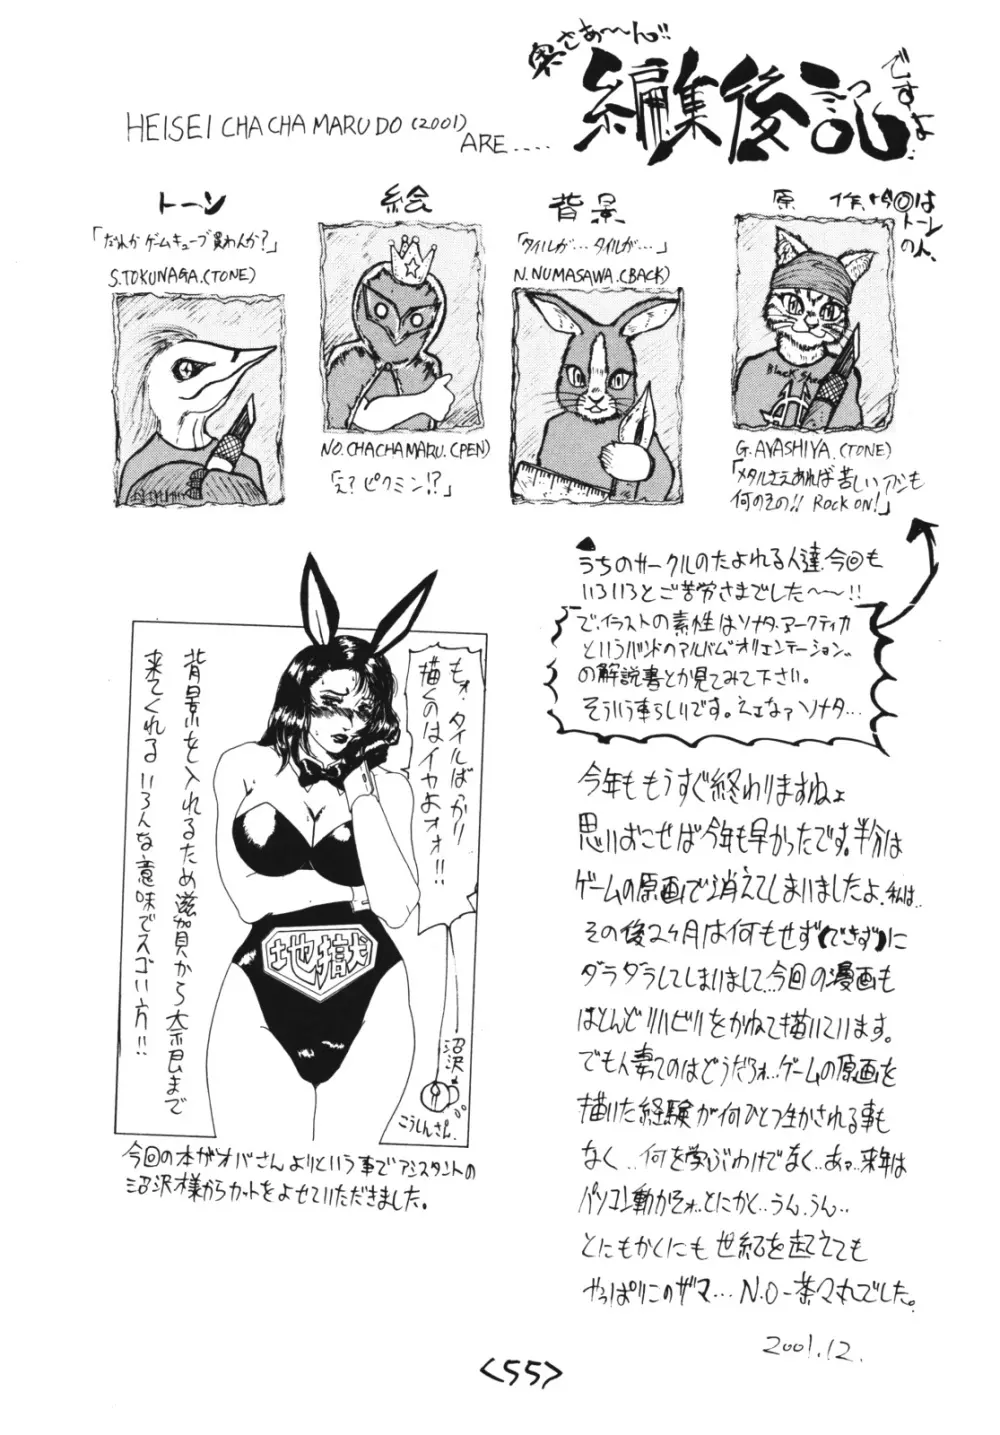 奥さぁ〜〜ん!!
編集後記
ですよ..
HEISEI CHACHAMARUDO (2001)
ARE....
トーン
「だれかゲームキューブ買わんか?」
S.TOKUNAGA.(TONE)
絵
NO.CHACHAMARU.(PEN)
「え?ピクミン!?」
背景
「タイルが…タイルが…」
N.NUMASAWA.(BACK)
原作、今回は
トーン
の人、
Black
G.AYASHIYA.(TONE)
「メタルさえあれば苦しいアシも
何のその!! ROCK ON!」
うちのサークルのたよれる人達、今回も
いろいろとご苦労さまでした〜〜!!
で、イラストの素性はソナタ・アークティカ
というバンドのアルバム"オリエンテーション"
の解説書とか見てみて下さい。
そういう事らしいです。ええなァソナタ…
もォ、タイルばっかり
描くのはイヤよォォ!!
背景を入れるため滋賀から奈良まで
来てくれるいろんな意味でスゴい方!!
地獄
沼沢
こうしんさん.
今回の本がオバさんよりという事でアシスタントの
沼沢様からカットをよせていただきました。
今年ももうすぐ終わりますねェ
思いおこせば今年も早かったです。半分は
ゲームの原画で消えてしまいましたよ.私は..
その後2ヶ月は何もせず(できず)に
ダラダラしてしまいまして..今回の漫画も
ほとんどリハビリをかねて描いています。
でも人妻ってのはどうだろォ…ゲームの原画を
描いた経験が何ひとつ生かされる事も
なく..何を学ぶわけでなく..あァ..来年は
パソコン動かそォ..とにかく..うん.うん..
とにもかくにも世紀を越えても
やっぱりこのザマ… N.O-茶々丸でした。
2001.12.
<55>